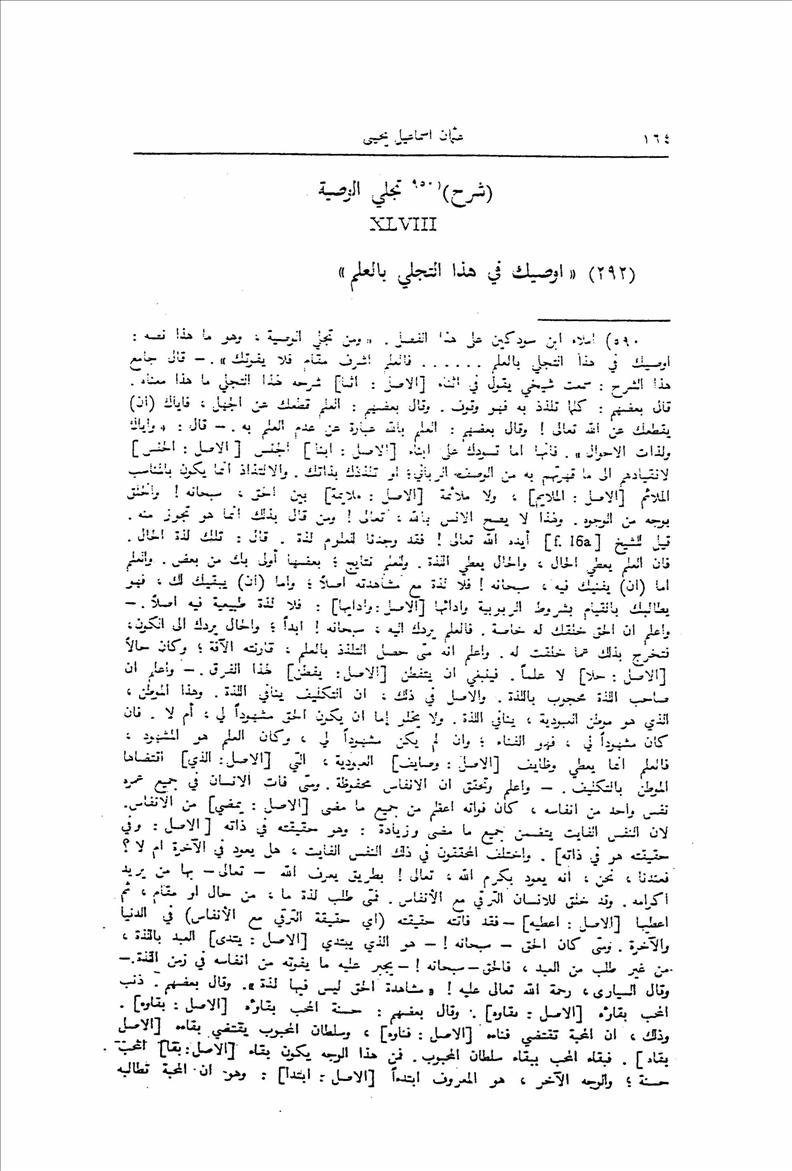 ١٦٤ عثمان اسماعيل يحيى
(شرح)(٥٩٠ تجلي الوصية
XLVIII
(٢٩٢) « اوصيك في هذا التجلي بالعلم »
٥٩٠) املاء ابن سودكين على هذا الفصل . « ومن تجلي الوصية ، وهو ما هذا نصه :
اوصيك في هذا التجلي بالعلم . . . . . . فالعلم اشرف مقام فلا يفوتك » . – قال جامع
هذا الشرح : سمعت شيخي يقول في اثناء [الاصل : اثنا] شرحه لهذا التجلي ما هذا معناه .
قال بعضهم : كلما تلذذ به فهو وقوف . وقال بعضهم : العلم قطعك عن الجهل ، فاياك (ان)
يقطعك عن الله تعالى ! وقال بعضهم : العلم بالله عبارة عن عدم العلم به . – قال : « واياك
ولذات الاحوال » . فانها اما تسودك على ابناء [الاصل : ابنا] الجنس [الاصل : الحنس]
لانقيادهم الى ما قهرتهم به من الوصف الرباني؛ او تلذذك بذاتك . والالتذاذ انما يكون بالمناسب
الملائم [الاصل : الملايم] ، ولا ملائمة [الاصل : ملايمة] بين الحق ، سبحانه ! والخلق
بوجه من الوجوه . ولهذا لا يصح الانس بالله ، تعالى ! ومن قال بذلك انما هو تجوز منه .
قيل للشيخ [f. 16a] أيده الله تعالى ! فقد وجدنا للعلوم لذة . قال : تلك لذة الحال .
فان العلم يعطي الحال ، والحال يعطي اللذة . وللعلم نتايج ؛ بعضها أولى بك من بعض . والعلم
اما (ان) يفنيك فيه ، سبحانه ! فلا لذة مع مشاهدته اصلاً ؛ واما (ان) يبقيك لك ، فهو
يطالبك بالقيام بشروط الربوبية وادائها [الاصل : وادايها] : فلا لذة طبيعية فيه اصلاً . –
واعلم ان الحق خلقك له خاصة . فالعلم يردك اليه ، سبحانه ! ابداً ؛ والحال يردك الى الكون،
فتخرج بذلك عما خلقت له . واعلم انه متى حصل التلذذ بالعلم ، قارنته الآفة ؛ وكان حالاً
[الاصل : حلا] لا علماً . فينبغي ان يتفطن [الاصل : يفطن] لهذا الفرق . – واعلم ان
صاحب اللذة محجوب باللذة . والاصل في ذلك ، ان التكليف ينافي اللذة . وهذا الموطن ،
الذي هو موطن العبودية ، ينافي اللذة . ولا يخلو إما ان يكون الحق مشهوداً لي ، أم لا . فان
كان مشهوداً لي ، فهو الفناء ؛ وان لم يكن مشهوداً لي ، وكان العلم هو المشهود ،
فالعلم انما يعطي وظايف [الاصل : وصايف] العبودية ، التي [الاصل : الذي] اقتضاها
الموطن بالتكليف . – واعلم وتحقق ان الانفاس محفوظة . ومتى فات الانسان في جميع عمره
نفس واحد من انفاسه ، كان فواته اعظم من جميع ما مضى [الاصل : يمضي] من الانفاس.
لان النفس الفايت يتضمن جميع ما مضى وزيادة : وهو حقيقته في ذاته [الاصل : وفي
حقيقته هو في ذاته] . واختلف المحققون في ذلك النفس الفايت ، هل يعود في الآخرة ام لا ؟
فعندنا ، نحن ، أنه يعود بكرم الله ، تعالى ! بطريق يعرف الله – تعالى – بها من يريد
اكرامه . وقد خلق للانسان الترقي مع الأنفاس . فمتى طلب لذة ما ، من حال او مقام ، ثم
اعطيها [الاصل : اعطيه] – فقد فاتته حقيقته (اي حقيقة الترقي مع الأنفاس) في الدنيا
والآخرة . ومتى كان الحق – سبحانه ! – هو الذي يبتدي [الاصل : يتدى] العبد باللذة ،
من غير طلب من العبد ، فالحق – سبحانه ! – يجبر عليه ما يفوته من انفاسه في زمن اللذة. –
وقال السيارى ، رحمة الله تعالى عليه ! « مشاهدة الحق ليس فيها لذة » . وقال بعضهم . ذنب
المحب بقاؤه [الاصل : بقاوه] . وقال بعضهم : حسنة المحب بقاؤه [الاصل : بقاوه] .
وذلك ، ان المحبة تقتضي فناءه [الاصل : فناوه] ، وسلطان المحبوب يقتضي بقاءه [الاصل
بقاه] . فبقاء المحب ببقاء سلطان المحبوب . فمن هذا الوجه يكون بقاء [الاصل : بقا] المحب
حسنة ؛ والوجه الآخر ، هو المعروف ابتداءاً [الاصل : ابتدا] : وهو ان المحبة تطالبه